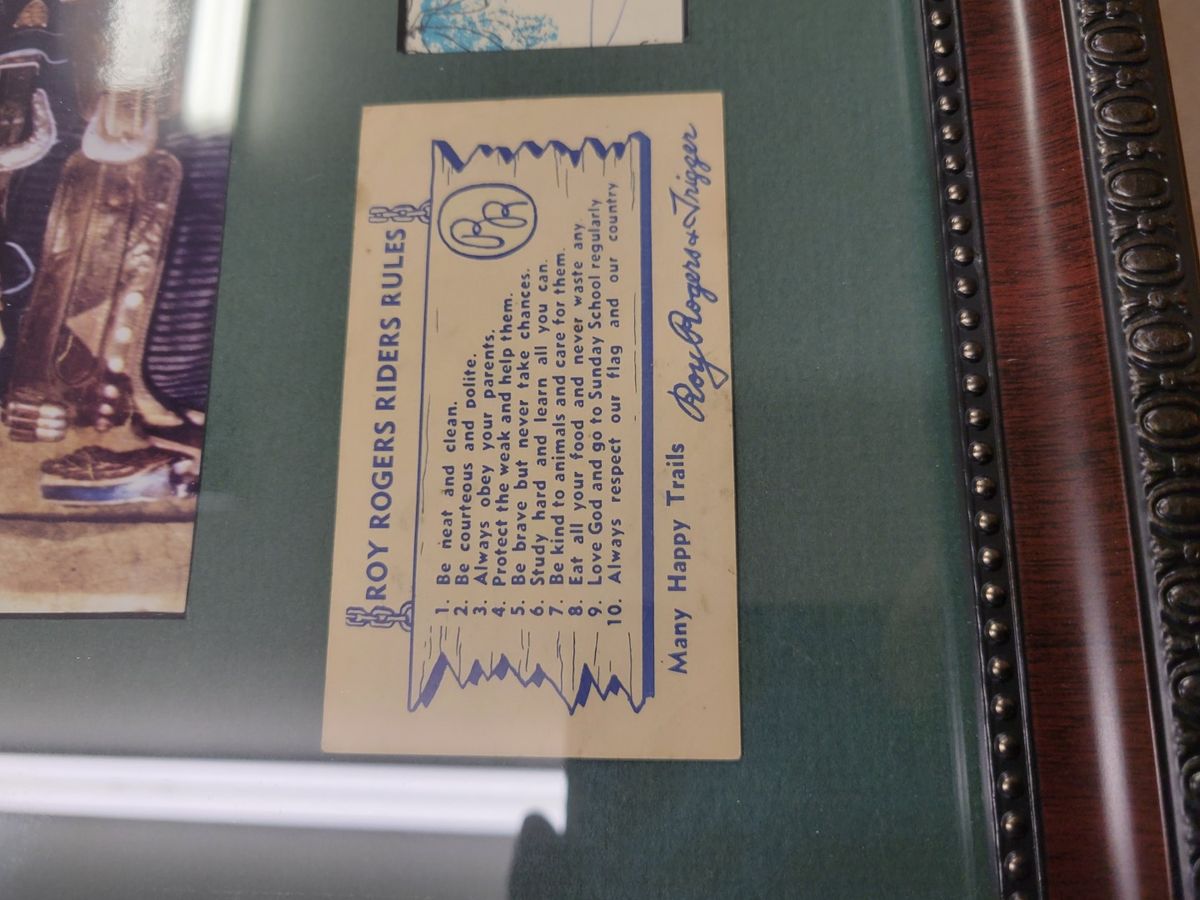 ROY ROGERS RIDERS RULES
RR
1. Be neat and clean.
2. Be courteous and polite.
3. Always obey your parents.
4. Protect the weak and help them.
5. Be brave but never take chances.
6. Study hard and learn all you can.
7. Be kind to animals and care for them.
8. Eat all your food and never waste any
9. Love God and go to Sunday School regularly
10. Always respect our flag and our country
Many Happy Trails Roy Rogers & Trigger